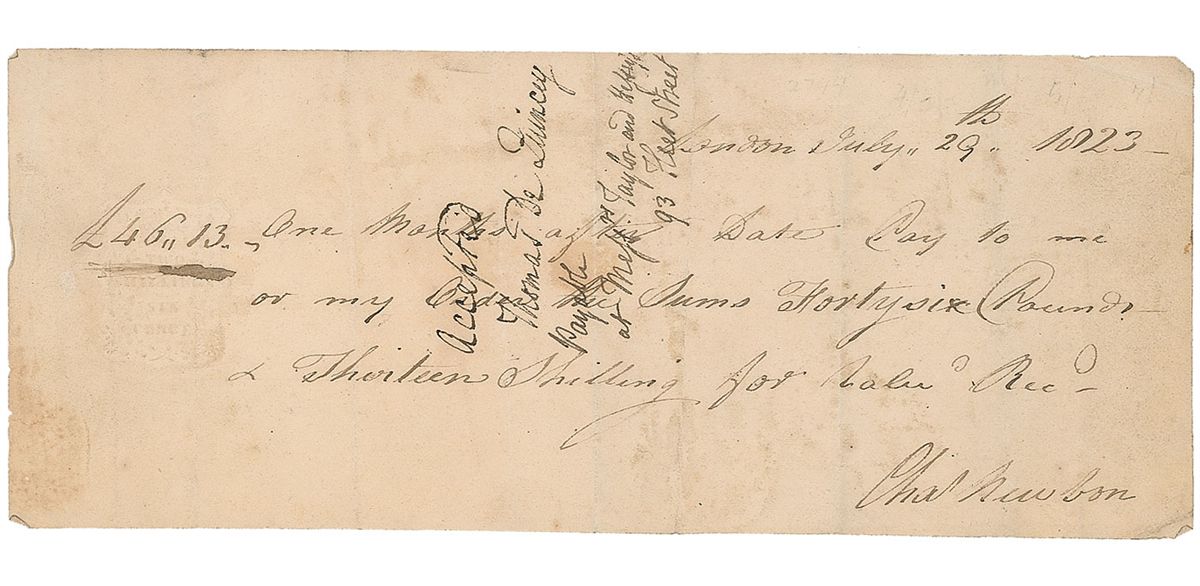 London July 29th 1823
£46,, 13,, One Month after Date Pay to me
or my Order the Sums Fortysix Pounds
& Thirteen Shilling for Valu'd Rec'd
Chas Newbon
Accepted
Thomas De Quincey
Payable
at Messrs Taylor and Hessey
93 Fleet Street
SIX